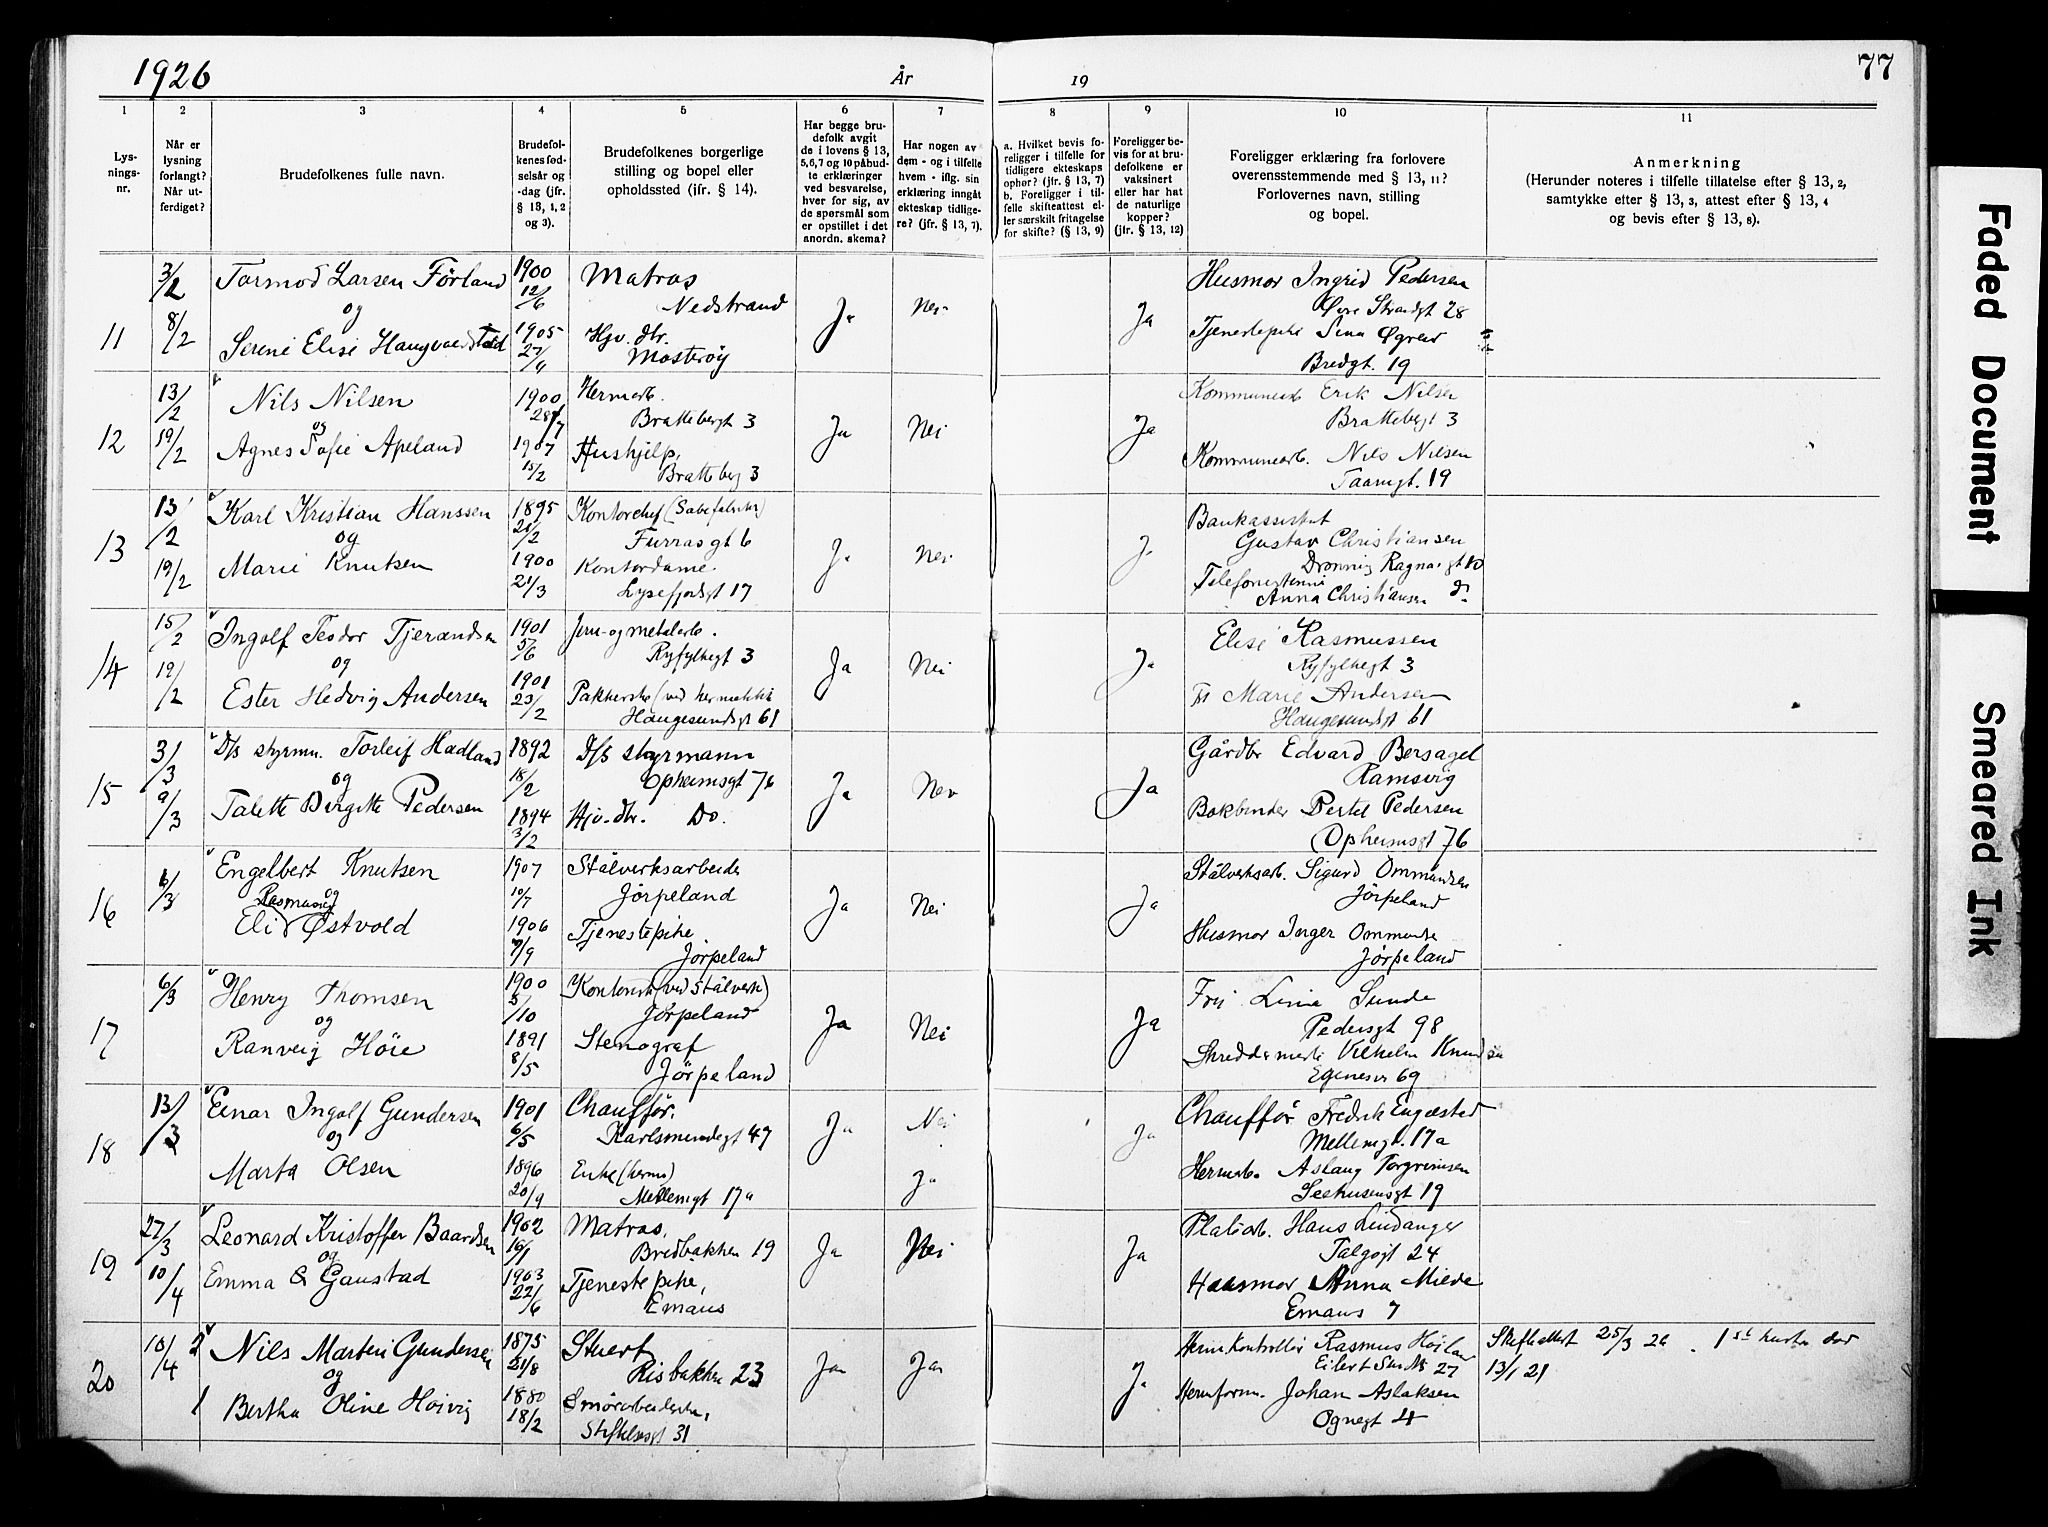 1926
År
19
77
1
2
3
4
5
6
7
8
9
10
11
Lys-
nings-
nr.
Når er
lysning
forlangt?
Når ut-
ferdiget?
Brudefolkenes fulle navn.
Brudefol-
kenes fød-
selsår og
-dag (jfr.
§ 13, 1, 2
og 3).
Brudefolkenes borgerlige
stilling og bopel eller
opholdssted (jfr. § 14).
Har begge bru-
defolk avgit
de i lovens § 13,
5, 6, 7 og 10 påbud-
te erklæringer
ved besvarelse,
hver for sig, av
de spørsmål som
er opstillet i det
anordn. skema?
Har nogen av
dem - og i tilfelle
hvem - iflg. sin
erklæring inngått
ekteskap tidlige-
re? (jfr. § 13, 7).
a. Hvilket bevis fo-
religger i tilfelle for
tidligere ekteskaps
ophør? (jfr. § 13, 7)
b. Foreligger i til-
felle skifteattest el-
ler særskilt fritagelse
for skifte? (§ 13, 9)
Foreligger be-
vis for at bru-
defolkene er
vaksinert
eller har hat
de naturlige
kopper?
(jfr. § 13, 12)
Foreligger erklæring fra forlovere
overensstemmende med § 13, 11?
Forlovernes navn, stilling
og bopel.
Anmerkning
(Herunder noteres i tilfelle tillatelse efter § 13, 2,
samtykke efter § 13, 3, attest efter § 13, 4
og bevis efter § 13, 8).
11
3/2
8/2
Tormod Larsen Førland
og
Serine Elise Haugvaldstad
1900
12/6
1905
27/4
Matros
Nedstrand
Hjv. dtr.
Mosterøy
Ja
Nei
Ja
Husmor Ingrid Pedersen
Øvre Strandgt 28
Tjenestepike Sina
Bredgt. 19
12
13/2
19/2
Nils Nilsen
og
Agnes Sofie Apeland
1900
28/7
1907
15/2
Hermarb.
Brattebergt 3
Hushjelp,
Bratteberg 3
Ja
Nei
Ja
Kommunearb Erik Nilsen
Brattebergt 3
Kommunearb. Nils Nilsen
Taarngt. 19
13
13/2
19/2
Karl Kristian Hanssen
og
Marie Knutsen
1895
21/2
1900
21/3
Kontorchef (Sæbefabrikk)
Furrasgt 6
Kontordame
Lysefjordgt 17
Ja
Nei
Ja
Bankassistent
Gustav Christiansen
Dronning Ragnas gt 10
Telefonistinne
Anna Christiansen do
14
15/2
19/2
Ingolf Teodor Tjerandsen
og
Ester Hedvig Andersen
1901
5/6
1901
23/2
Jern- og metalarb.
Ryfylkegt 3
Pakkerske (ved hermetikk
Haugesundsgt 61
Ja
Nei
Ja
Elise Rasmussen
Ryfylkegt 3
Fr Marie Andersen
Haugesundsgt 61
15
3/3
9/3
D/s styrmn. Torleif Hadland
og
Talette Birgitte Pedersen
1892
18/2
1894
3/2
D/s styrmann
Opheimsgt 76
Hjv. dtr. Do.
Ja
Nei
Ja
Gårdbr Edvard Bersagel
Ramsvig
Bokbinder Bertel Pedersen
Opheimsgt 76
16
6/3
Engelbert Knutsen
og
Rasmussen
Eli Østvold
1907
10/7
1906
7/9
Stålverksarbeider
Jørpeland
Tjenestepike
Jørpeland
Ja
Nei
Ja
Stålverksarb. Sigurd Ommundsen
Jørpeland
Husmor Inger Ommundsen
Jørpeland
17
6/3
Henry Thomsen
og
Ranveig Høie
1900
5/10
1891
8/5
Kontorist (ved Stålverk)
Jørpeland
Stenograf
Jørpeland
Ja
Nei
Ja
Frø Lina Sunde
Pedersgt 98
Skreddermester Vilhelm Knudsen
Egenesv 69
18
13/3
Einar Ingolf Gundersen
og
Marta Olsen
1901
6/5
1896
20/9
Chauffør.
Karlsmindegt 47
Enke (herm)
Mellemgt 17a
Ja
Nei
Ja
Ja
Chauffør Fredrik Engæsted
Mellemgt. 17a
Hermarb. Aslaug Torgrimsen
Seehusensgt 19
19
27/3
10/4
Leonard Kristoffer Baardsen
og
Emma E Gaustad
1902
16/1
1903
22/6
Matros,
Bredbakken 19
Tjenestepike,
Emaus
Ja
Nei
Ja
Platearb. Hans Lindanger
Talgøgt 24
Husmor Anna Milde
Emaus 7
20
10/4
2 Nils Martin Gundersen
og
1 Bertha Oline Høivig
1875
21/8
1880
18/2
Stuert
Risbakken 23
Smørarbeiderske,
Stiftelsesgt 31
Ja
Ja
Ja
Herm Kontrollør Rasmus Høiland
Eilert Smiths 27
Hermform. Johan Aslaksen
Ognegt 4
Skifteattest 25/3 26. 1ste hustru død
13/1 21
Faded Document
Smeared Ink